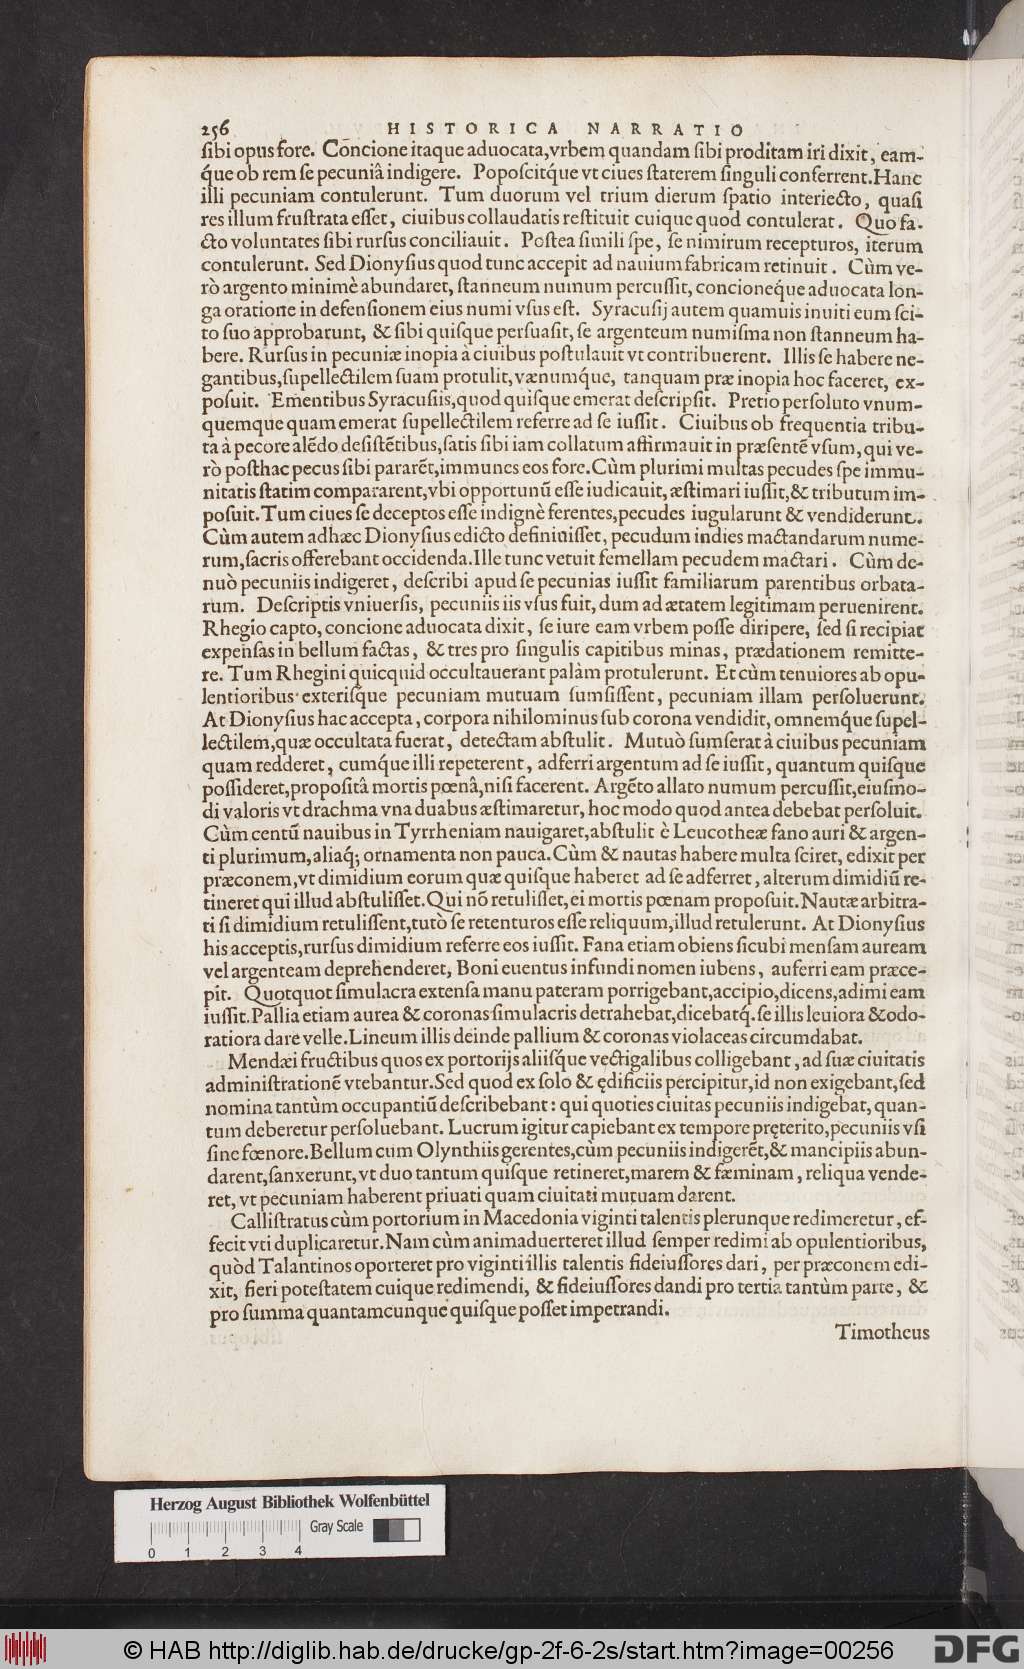 256 HISTORICA NARRATIO
ſibi opus fore. Concione itaque aduocata, vrbem quandam ſibi proditam iri dixit, eam-
q́ue ob rem ſe pecuniâ indigere. Popoſcitq́ue vt ciues ſtaterem ſinguli conferrent. Hanc
illi pecuniam contulerunt. Tum duorum vel trium dierum ſpatio interiecto, quaſi
res illum fruſtrata eſſet, ciuibus collaudatis reſtituit cuique quod contulerat. Quo fa-
cto voluntates ſibi rurſus conciliauit. Poſtea ſimili ſpe, ſe nimirum recepturos, iterum
contulerunt. Sed Dionyſius quod tunc accepit ad nauium fabricam retinuit. Cùm ve-
rò argento minimè abundaret, ſtanneum numum percuſſit, concioneq́ue aduocata lon-
ga oratione in defenſionem eius numi vſus eſt. Syracuſij autem quamuis inuiti eum ſci-
to ſuo approbarunt, & ſibi quiſque perſuaſit, ſe argenteum numiſma non ſtanneum ha-
bere. Rurſus in pecuniæ inopia à ciuibus poſtulauit vt contribuerent. Illis ſe habere ne-
gantibus, ſupellectilem ſuam protulit, vænumq́ue, tanquam præ inopia hoc faceret, ex-
poſuit. Ementibus Syracuſiis, quod quiſque emerat deſcripſit. Pretio perſoluto vnum-
quemque quam emerat ſupellectilem referre ad ſe iuſſit. Ciuibus ob frequentia tribu-
ta à pecore alẽdo deſiſtẽtibus, ſatis ſibi iam collatum affirmauit in præſentẽ vſum, qui ve-
rò poſthac pecus ſibi pararẽt, immunes eos fore. Cùm plurimi multas pecudes ſpe immu-
nitatis ſtatim compararent, vbi opportunũ eſſe iudicauit, æſtimari iuſſit, & tributum im-
poſuit. Tum ciues ſe deceptos eſſe indignè ferentes, pecudes iugularunt & vendiderunt.
Cùm autem adhæc Dionyſius edicto definiuiſſet, pecudum indies mactandarum nume-
rum, ſacris offerebant occidenda. Ille tunc vetuit femellam pecudem mactari. Cùm de-
nuò pecuniis indigeret, deſcribi apud ſe pecunias iuſſit familiarum parentibus orbata-
rum. Deſcriptis vniuerſis, pecuniis iis vſus fuit, dum ad ætatem legitimam peruenirent.
Rhegio capto, concione aduocata dixit, ſe iure eam vrbem poſſe diripere, ſed ſi recipiat
expenſas in bellum factas, & tres pro ſingulis capitibus minas, prædationem remitte-
re. Tum Rhegini quicquid occultauerant palàm protulerunt. Et cùm tenuiores ab opu-
lentioribus exteriſque pecuniam mutuam ſumſiſſent, pecuniam illam perſoluerunt.
At Dionyſius hac accepta, corpora nihilominus ſub corona vendidit, omnemq́ue ſupel-
lectilem, quæ occultata fuerat, detectam abſtulit. Mutuò ſumſerat à ciuibus pecuniam
quam redderet, cumq́ue illi repeterent, adferri argentum ad ſe iuſſit, quantum quiſque
poſſideret, propoſitâ mortis pœnâ, niſi facerent. Argẽto allato numum percuſſit, eiuſmo-
di valoris vt drachma vna duabus æſtimaretur, hoc modo quod antea debebat perſoluit.
Cùm centũ nauibus in Tyrrheniam nauigaret, abſtulit è Leucotheæ fano auri & argen-
ti plurimum, aliaq́; ornamenta non pauca. Cùm & nautas habere multa ſciret, edixit per
præconem, vt dimidium eorum quæ quiſque haberet ad ſe adferret, alterum dimidiũ re-
tineret qui illud abſtuliſſet. Qui nõ retuliſſet, ei mortis pœnam propoſuit. Nautæ arbitra-
ti ſi dimidium retuliſſent, tutò ſe retenturos eſſe reliquum, illud retulerunt. At Dionyſius
his acceptis, rurſus dimidium referre eos iuſſit. Fana etiam obiens ſicubi menſam auream
vel argenteam deprehenderet, Boni euentus infundi nomen iubens, auferri eam præce-
pit. Quotquot ſimulacra extenſa manu pateram porrigebant, accipio, dicens, adimi eam
iuſſit. Pallia etiam aurea & coronas ſimulacris detrahebat, dicebatq́. ſe illis leuiora & odo-
ratiora dare velle. Lineum illis deinde pallium & coronas violaceas circumdabat.
Mendæi fructibus quos ex portorijs aliiſque vectigalibus colligebant, ad ſuæ ciuitatis
adminiſtrationẽ vtebantur. Sed quod ex ſolo & ędificiis percipitur, id non exigebant, ſed
nomina tantùm occupantiũ deſcribebant: qui quoties ciuitas pecuniis indigebat, quan-
tum deberetur perſoluebant. Lucrum igitur capiebant ex tempore pręterito, pecuniis vſi
ſine fœnore. Bellum cum Olynthiis gerentes, cùm pecuniis indigerẽt, & mancipiis abun-
darent, ſanxerunt, vt duo tantum quiſque retineret, marem & fæminam, reliqua vende-
ret, vt pecuniam haberent priuati quam ciuitati mutuam darent.
Calliſtratus cùm portorium in Macedonia viginti talentis plerunque redimeretur, ef-
fecit vti duplicaretur. Nam cùm animaduerteret illud ſemper redimi ab opulentioribus,
quòd Talantinos oporteret pro viginti illis talentis fideiuſſores dari, per præconem edi-
xit, fieri poteſtatem cuique redimendi, & fideiuſſores dandi pro tertia tantùm parte, &
pro ſumma quantamcunque quiſque poſſet impetrandi.
Timotheus
Herzog August Bibliothek Wolfenbüttel
Gray Scale
0 1 2 3 4
© HAB http://diglib.hab.de/drucke/gp-2f-6-2s/start.htm?image=00256
DFG